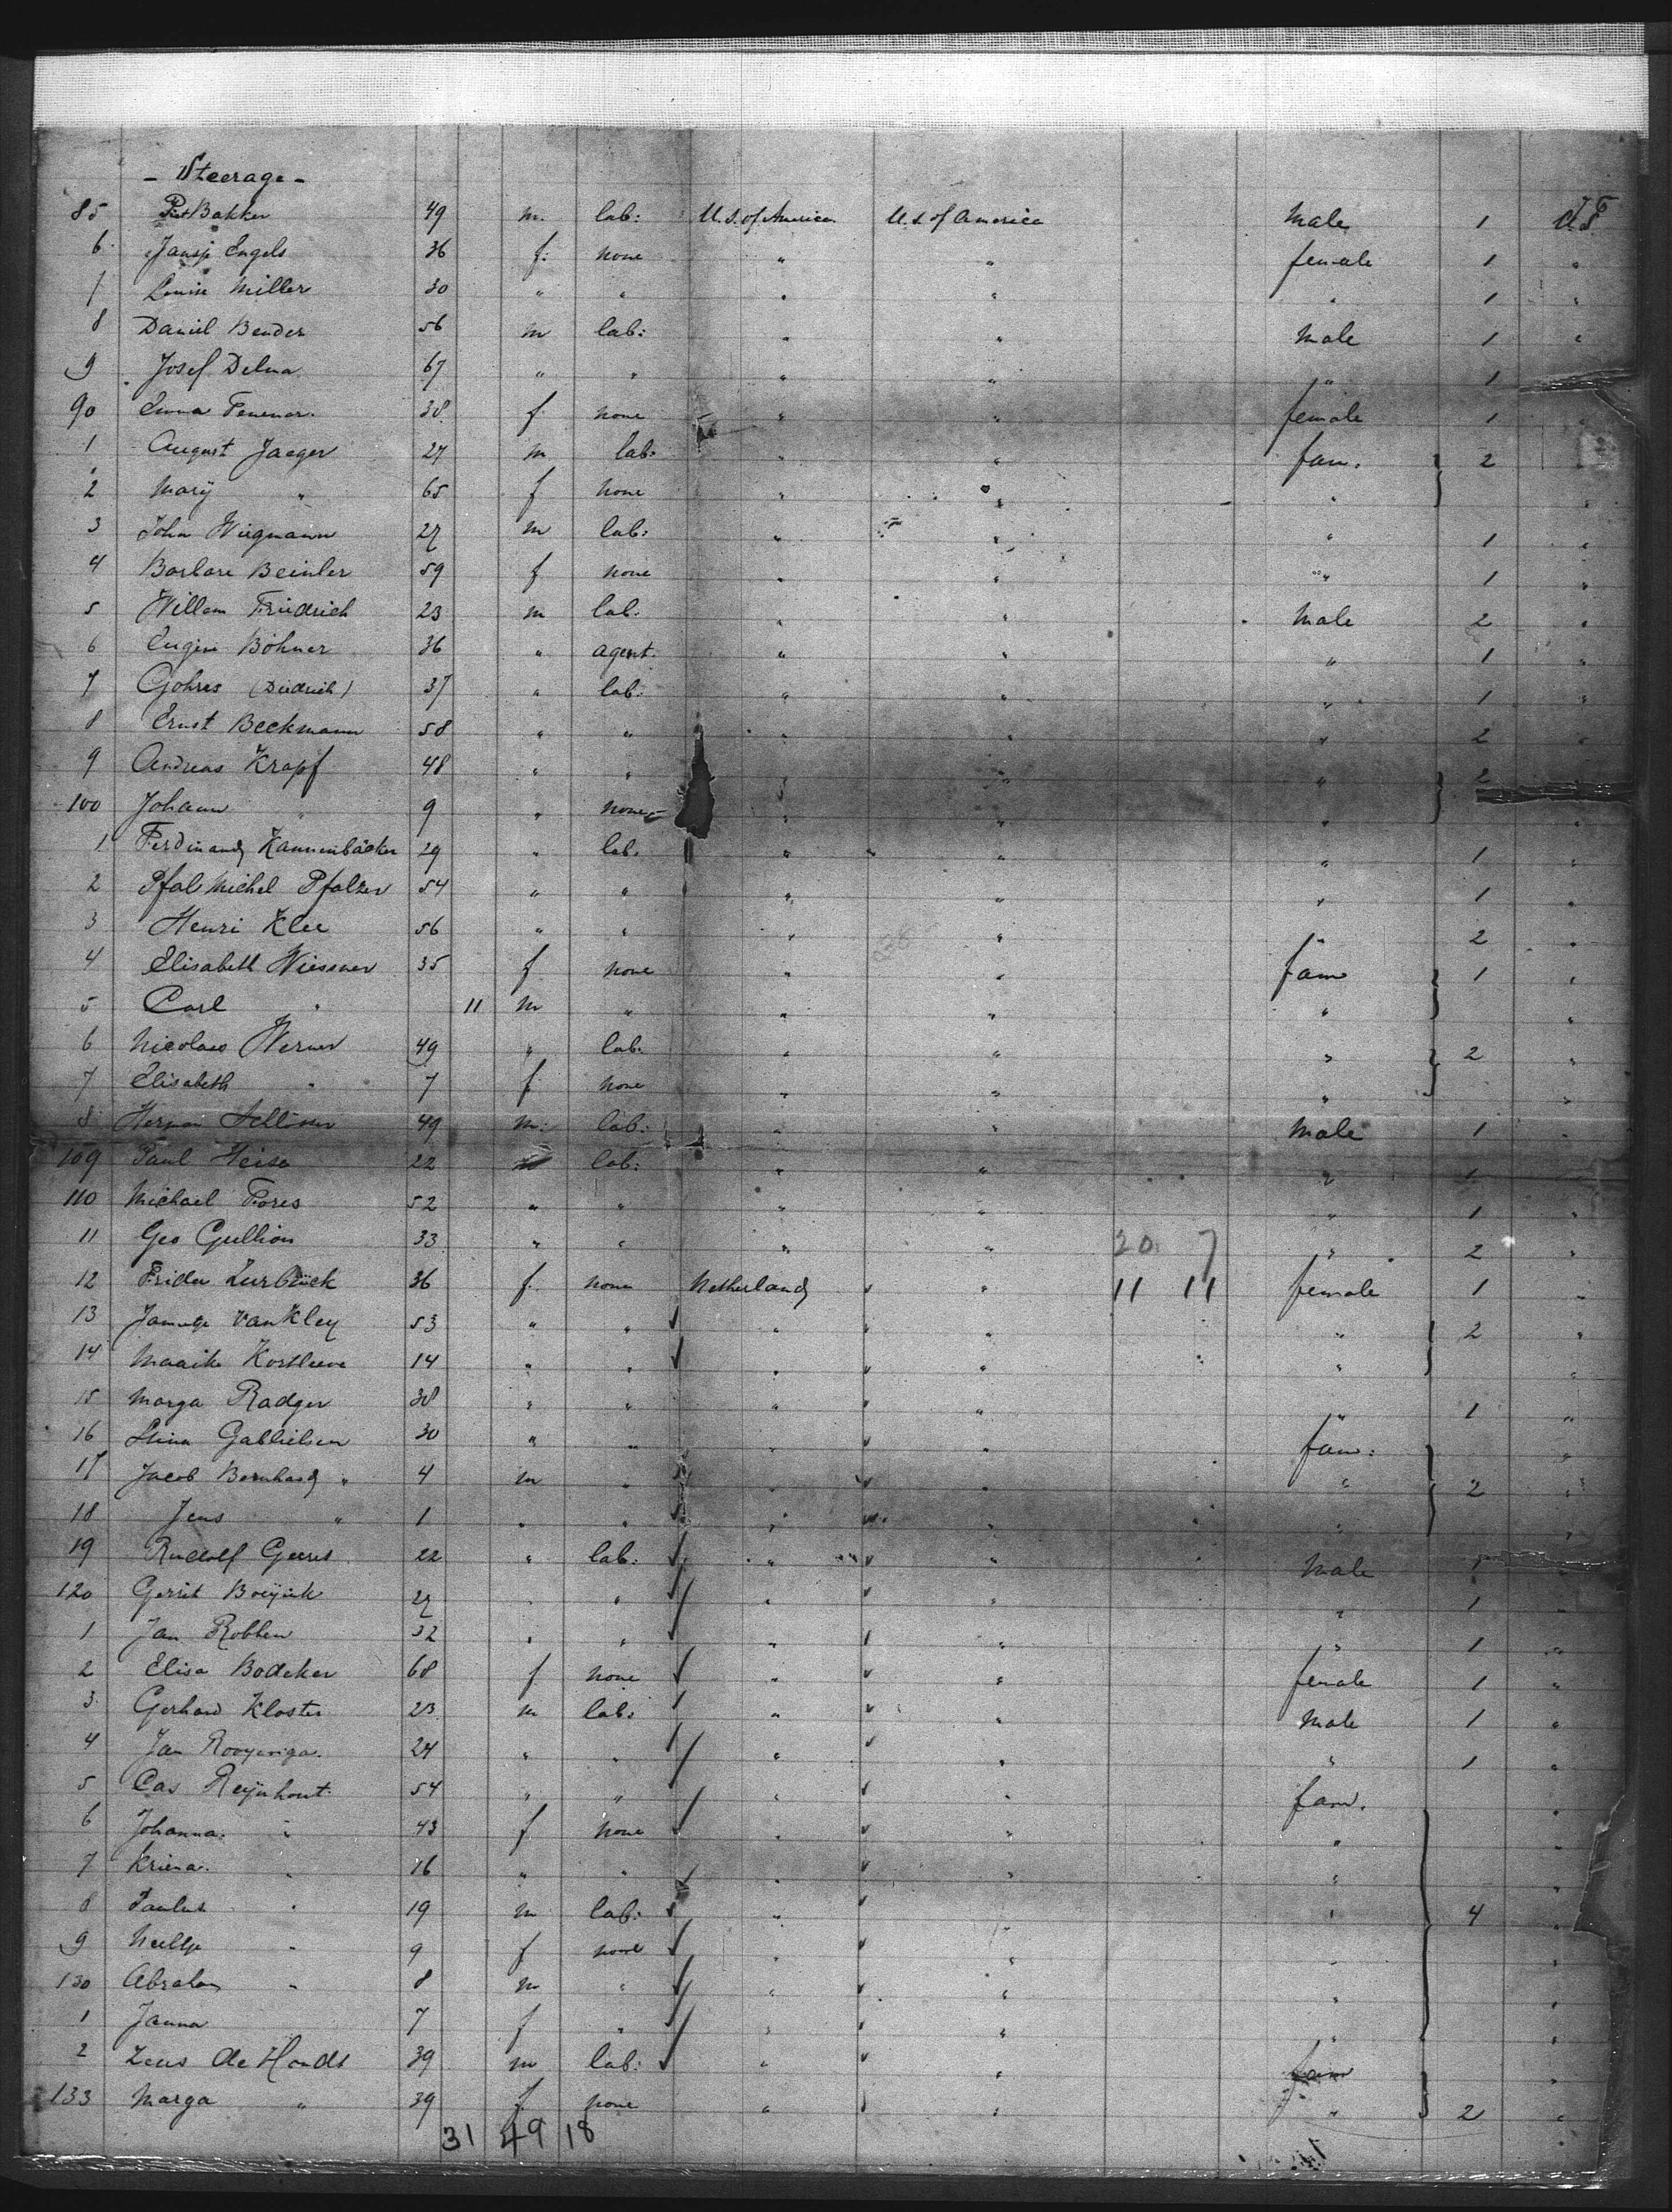 - Steerage -
85 Piet Bakker 49 m. lab: U.S. of America U.S. of America Male 1 U.S.
6 Jansje Engels 36 f. none " " female 1 "
7 Louise Miller 30 " " " " " 1 "
8 Daniel Bender 56 m lab: " " Male 1 "
9 Josef Delma 67 " " " " " 1
90 Emma 38 f. none " " female 1 "
1 August Jaeger 27 m lab: " " fam. 2 "
2 Marÿ " 65 f none " " " "
3 John Wiegmann 27 m lab: " " " 1 "
4 Barbara Beinler 59 f none " " " 1 "
5 Willem Friedrich 23 m lab. " " Male 2 "
6 Eugene Böhner 36 " agent. " " " 1 "
7 Gohres (Diedrich) 37 " lab: " " " 1 "
8 Ernst Beckmann 58 " " " " " 2 "
9 Andreas Krapf 48 " " " " " 2
100 Johann " 9 " none " " " "
1 Ferdinand Kannenbäcker 29 " lab. " " " 1 "
2 Pfal Michel Pfalzer 54 " " " " " 1 "
3 Henri Klee 56 " " " " " 2 "
4 Elisabeth Wiessner 35 f none " " fam 1 "
5 Carl " 11 m " " " " "
6 Nicolaus Werner 49 " lab. " " " 2 "
7 Elisabeth " 7 f none " " " "
8 Herman 49 m: lab: " " Male 1 "
109 Paul Heise 22 lab: " " " 1 "
110 Michael Fores 52 " " " " " 1 "
11 Geo Gullion 33 " " " " 20 7 " 2 "
12 Frieda Zurbrück 36 f. none Netherland " 11 11 female 1 "
13 van Kley 53 " " " " " 2 "
14 Maaike Korsleeve 14 " " " " " "
15 Marga Radger 38 " " " " " 1 "
16 Stina Gabrielsen 30 " " " " fam: "
17 Jacob Bernhard " 4 m " " " " 2 "
18 Jens " 1 " " " " " "
19 Rudolf Geers 22 " lab: " " Male 1 "
120 Gerrit 27 " " " " " 1 "
1 Jan Robben 32 " " " " " 1 "
2 Elisa Bodeker 68 f none " " female 1 "
3 Gerhard Kloster 23 m lab: " " Male 1 "
4 Jan 24 " " " " " 1 "
5 Cas Reÿnhout 54 " " " " fam. "
6 Johanna " 43 f none " " " "
7 Kriena " 16 " " " " " "
8 Paulus " 19 m lab: " " " 4 "
9 Neeltje " 9 f none " " " "
130 Abraham " 8 m " " " " "
1 Janna 7 f " " " " "
2 de Hondt 39 m lab: " " fam "
133 Marga " 39 f. none " " " 2 "
31 49 18